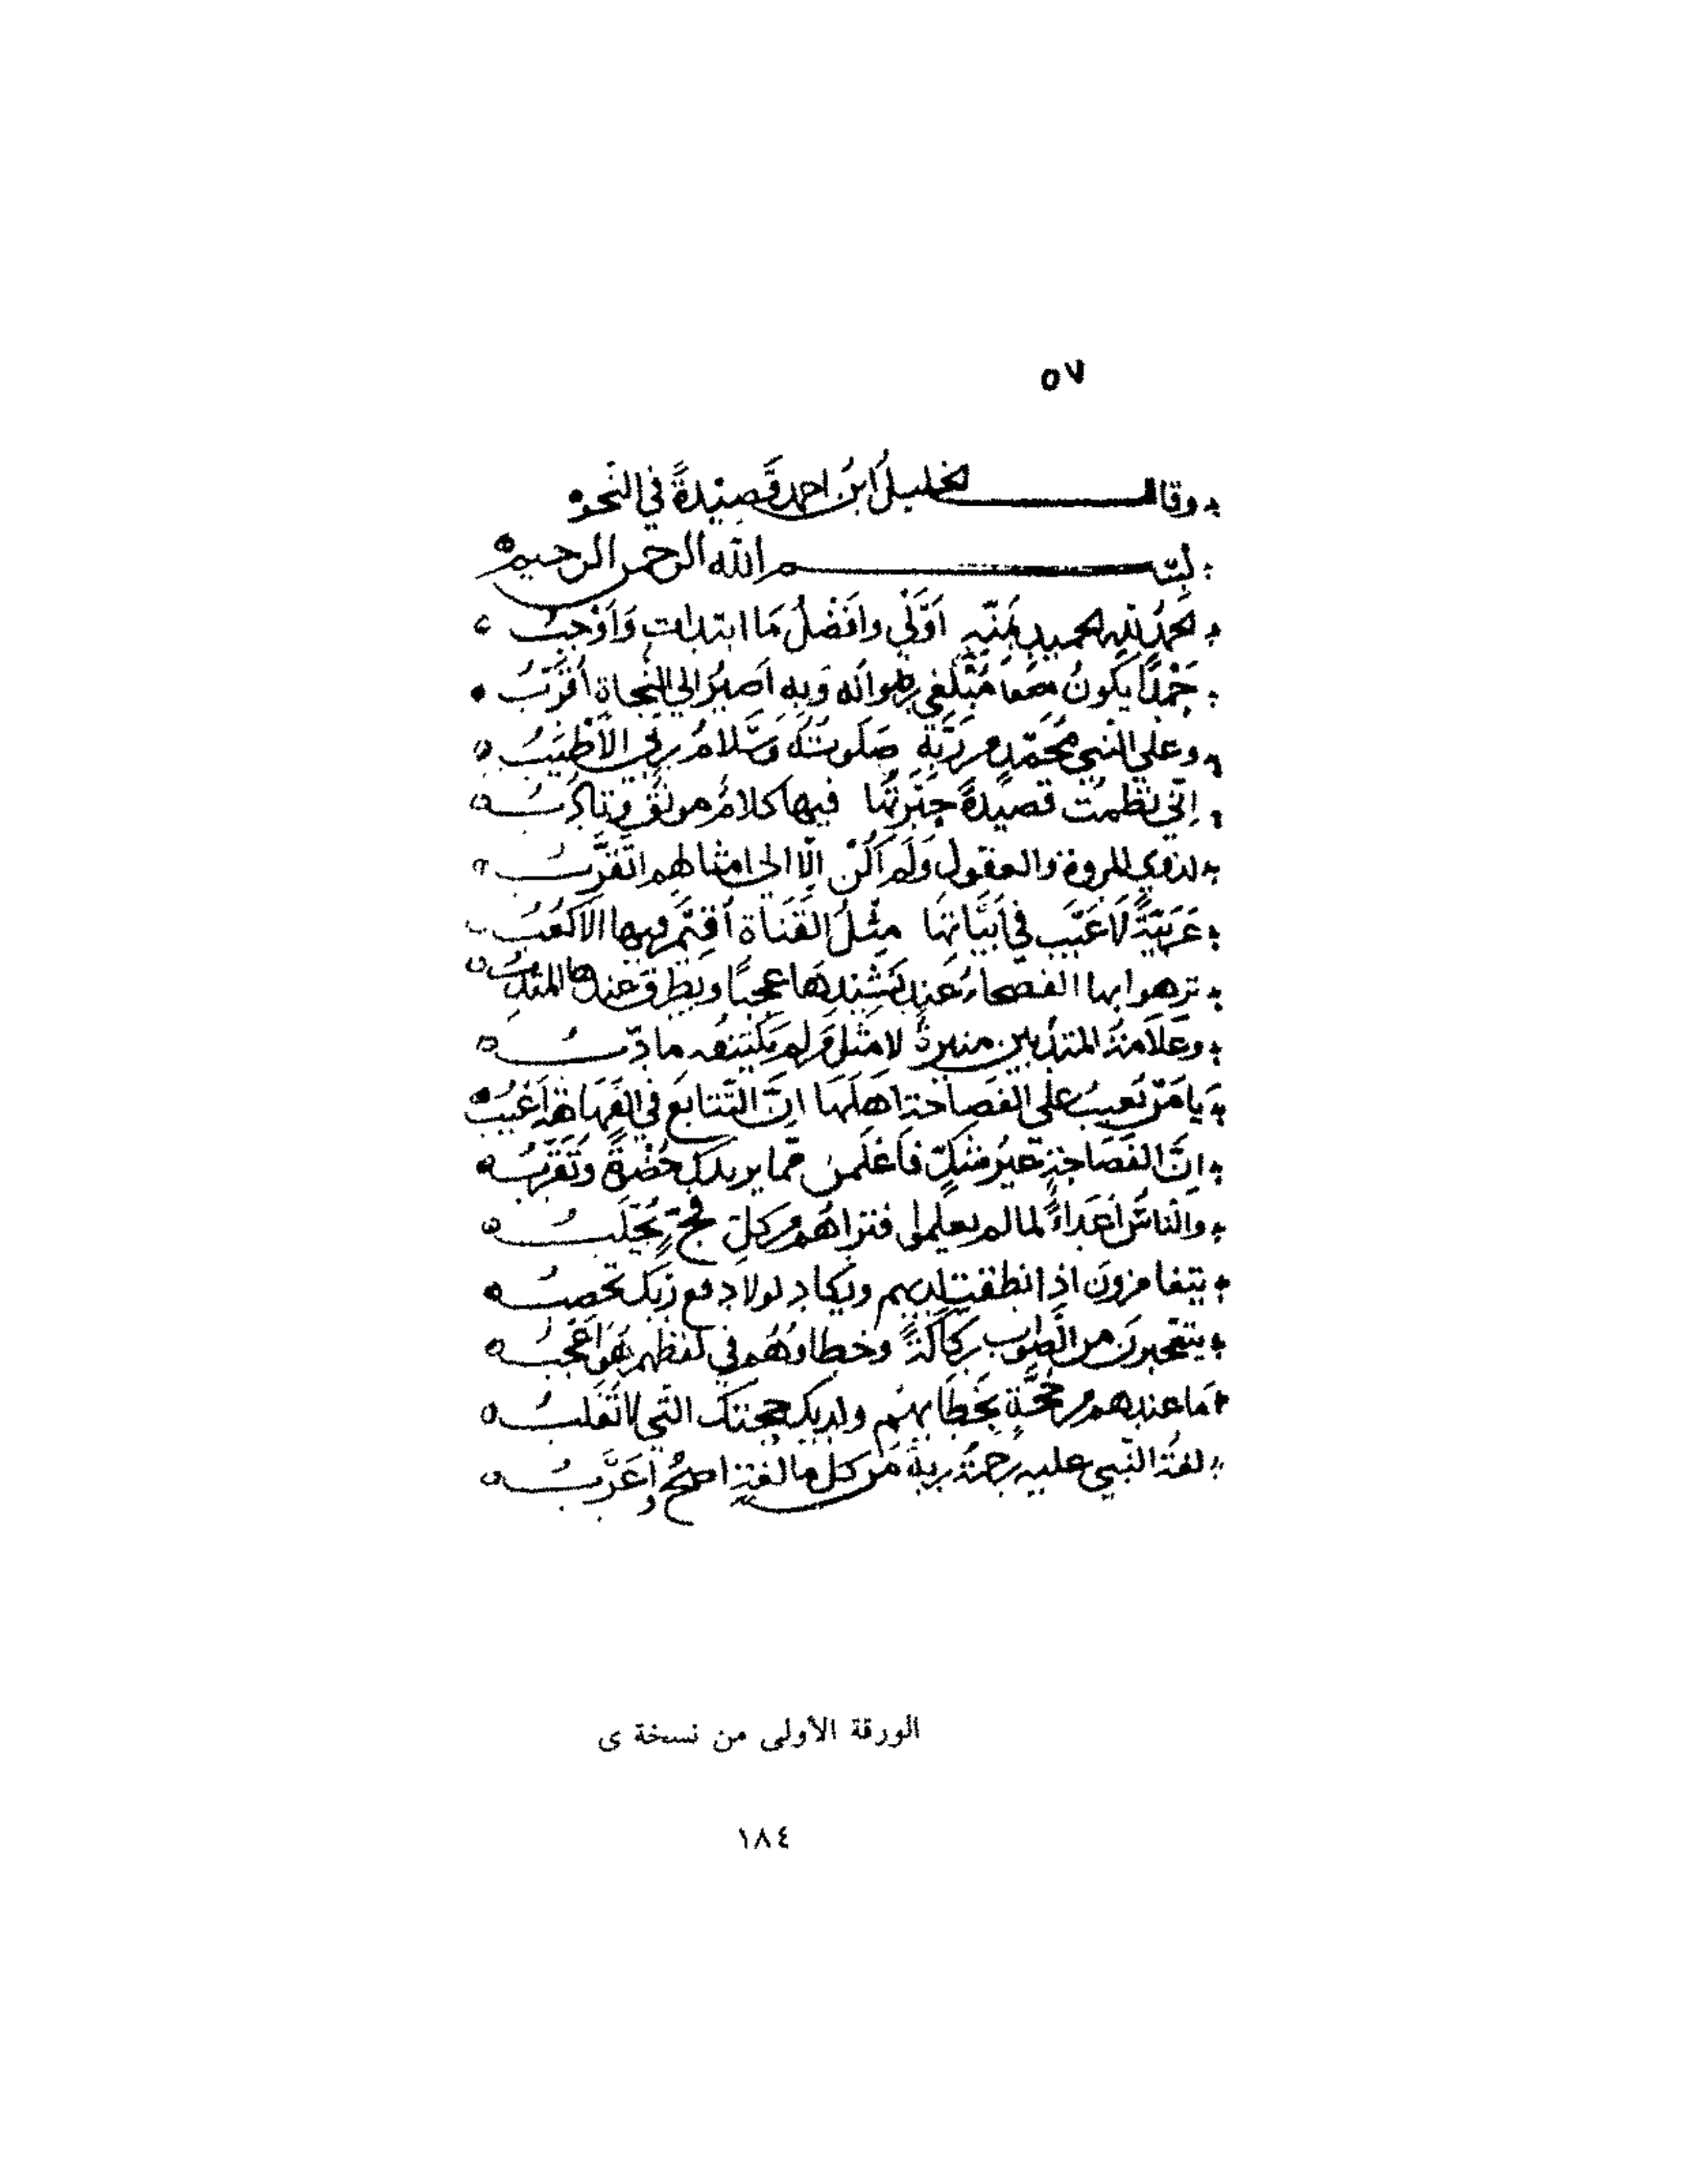 ٥٧
وقال الخليل ابن احمد قَصِيْدةً في النحو
بسم الله الرحمن الرحيم
الحمدُ لله الحميدِ بمَنّهِ أَوْلَى وافْضلُ مَا ابتدات وَأَوْجبُ
حَمْداً يكونُ مُبَلِّغي رضوانه وَبِه أصيرُ الي النَّجاة أُقْرَّبُ
وعلي النَّبي مُحَمّدٍ من رَبّه صَلَوتُهُ وسَّلامُ ربي الأَطْيَبُ
اِنّي نظمْتُ قصيْدةً حبَّرتُها فيها كلامٌ مونقٌ وتأدُّبُ
لذوي المروة والعقول وَلَم اَكُنْ الّا الى امثالهم اتَقرَّبُ
عَربيّةً لَا عَيْبَ في اَبْيَاتِهَا مِثْلُ القَنَاة أُقِيْمَ فيها الاَكعُبُ
تزهوا بها الفصحاءُ عند نَشِيْدِهَا عجباً ويطرق عندها المتأدبُ
يَا مَنْ يَعيبُ على الفصَاحة اهلَها اِنَّ التَّتابعَ في الفَهَاهَة اَعْيَبُ
اِنَّ الفَصَاحة غيرُ شكٍّ فَاعْلَمنْ مّما يزيدك حُضْوةً وتُقَرّبُ
والنّاسُ اَعْدَاءٌ لما لم يعلموا فتراهُم من كلِّ فجٍّ تُجْلَبُ
يتغامزونَ اذا نطقتَ لديهم وتكاد لولا دفع ربّك تحصبُ
يتعجبونَ من الصَّواب ركَاكَةً وخطاوهُم في لفظهم هُوَ اَعْجبُ
مَا عندهم من حُجَّةٍ بخَطَابهم ولديك حجتكَ التّي لا تُغْلبُ
لغةُ النّبي عليه رحمةُ ربهِ من كل ما لغةٍ اصحُّ واَعْرَبُ
الورقة الأولى من نسخة ى
١٨٤